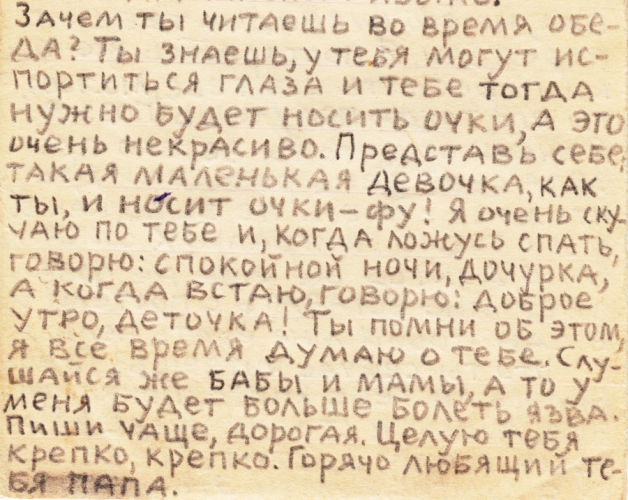 Зачем ты читаешь во время обе-
да? Ты знаешь, у тебя могут ис-
портиться глаза и тебе тогда
нужно будет носить очки, а это
очень некрасиво. Представь себе:
такая маленькая девочка, как
ты, и носит очки – фу! Я очень ску-
чаю по тебе и, когда ложусь спать,
говорю: спокойной ночи, дочурка,
а когда встаю, говорю: доброе
утро, деточка! Ты помни об этом,
я все время думаю о тебе. Слу-
шайся же бабы и мамы, а то у
меня будет больше болеть язва.
Пиши чаще, дорогая. Целую тебя
крепко, крепко. Горячо любящий те-
бя папа.